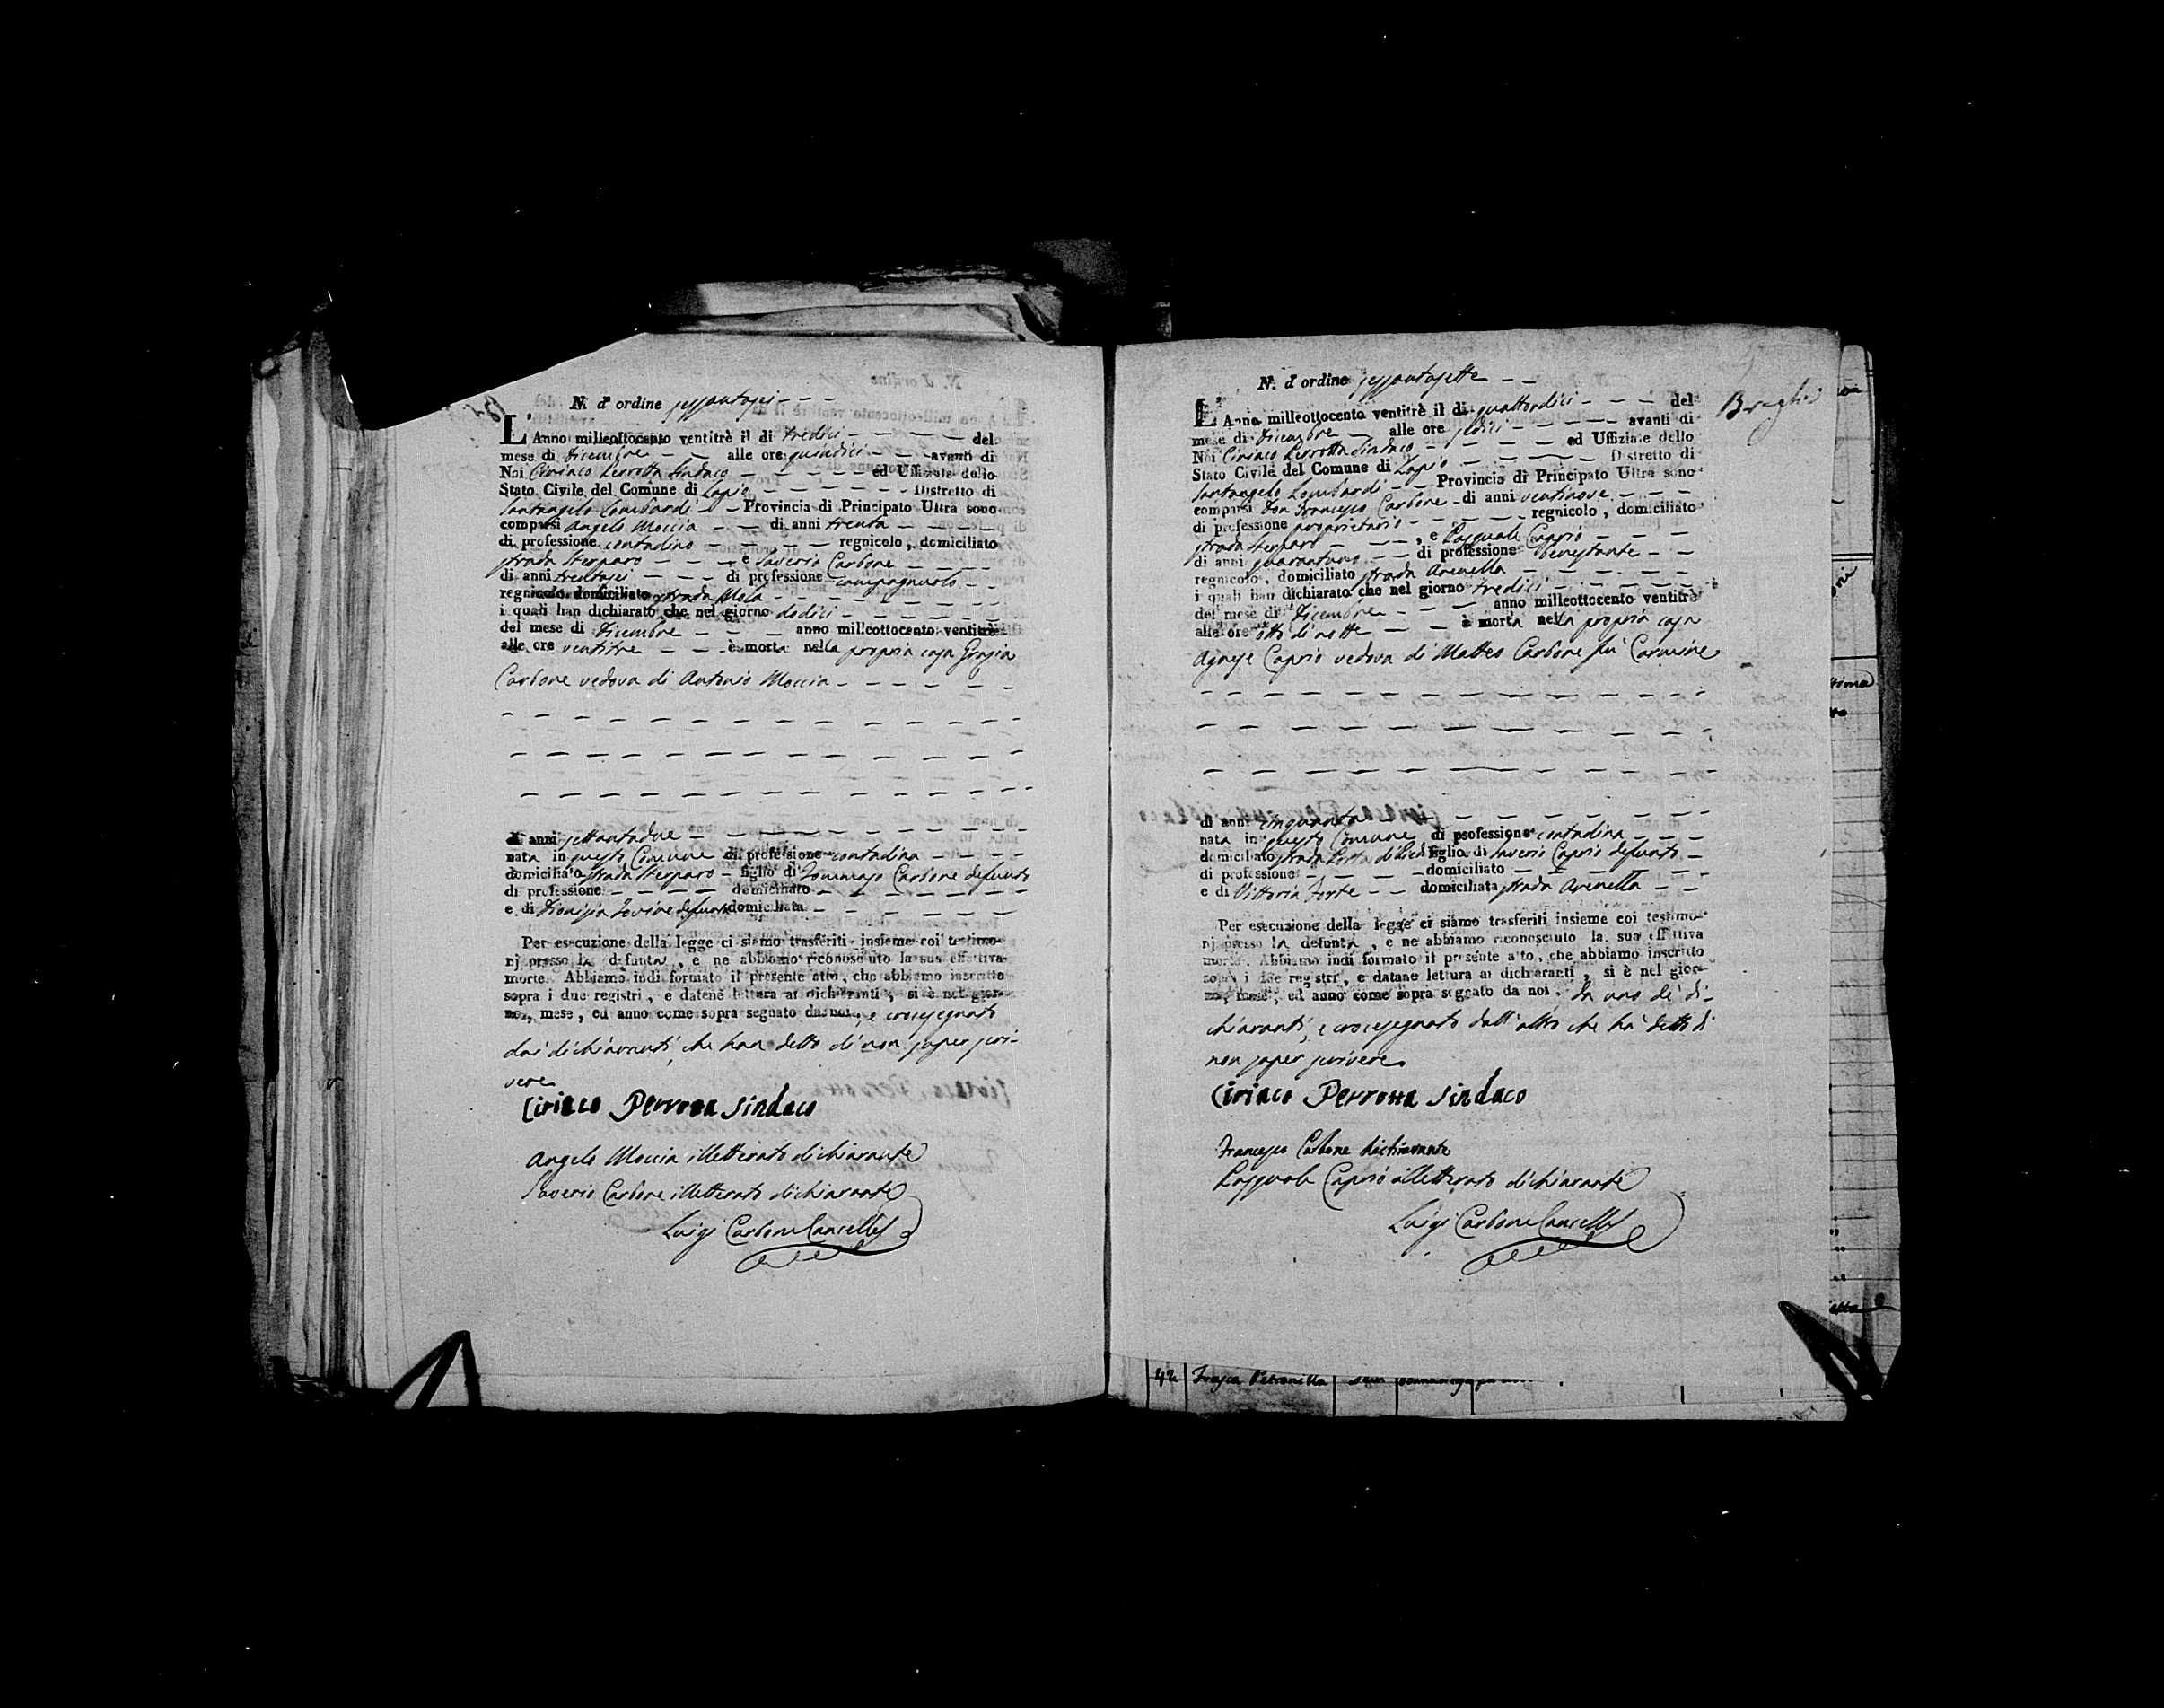 N. d'ordine sessantasei
L'Anno milleottocento ventitrè il di tredici del
mese di Dicembre alle ore quindici avanti di
Noi Ciriaco Perrotta Sindaco ed Uffiziale dello
Stato Civile del Comune di Lapio Distretto di
Santangelo Lombardi Provincia di Principato Ultra sono
comparsi Angelo Moccia di anni trenta
di professione contadino regnicolo, domiciliato
strada Sterparo e Saverio Carbone
di anni trentasei di professione campagnuolo
regnicolo domiciliato strada Mola
i quali han dichiarato che nel giorno dodici
del mese di Dicembre anno milleottocento ventitrè
alle ore ventitre è morta nella propria casa Grazia
Carbone vedova di Antonio Moccia
di anni settantadue
nata in questo Comune di professione contadina
domiciliato strada Sterparo figlio di Tommaso Carbone defunto
di professione domiciliato
e di Dionisia Iovine defunta domiciliata
Per esecuzione della legge ci siamo trasferiti insieme coi testimo-
nj presso la defunta, e ne abbiamo riconosciuto la sua effettiva
morte. Abbiamo indi formato il presente atto, che abbiamo inscritto
sopra i due registri, e datene lettura ai dichiaranti, si è nel gior-
no, mese, ed anno come sopra segnato da noi, e crocesegnato
dai dichiaranti, che han detto di non saper scri-
vere
Ciriaco Perrotta Sindaco
Angelo Moccia illetterato dichiarante
Saverio Carbone illetterato dichiarante
Luigi Carbone Cancell
N. d'ordine sessantasette
L'Anno milleottocento ventitrè il di quattordici del
mese di Dicembre alle ore sedici avanti di
Noi Ciriaco Perrotta Sindaco ed Uffiziale dello
Stato Civile del Comune di Lapio Distretto di
Santangelo Lombardi Provincia di Principato Ultra sono
comparsi Don Francesco Carbone di anni ventinove
di professione proprietario regnicolo, domiciliato
strada Sterparo, e Pasquale Caprio
di anni quarantuno di professione benestante
regnicolo, domiciliato strada Arenella
i quali han dichiarato che nel giorno tredici
del mese di Dicembre anno milleottocento ventitrè
alle ore otto di notte è morta nella propria casa
Agnese Caprio vedova di Matteo Carbone fu Carmine
di anni cinquanta
nata in questo Comune di professione contadina
domiciliato strada Porta di figlia di Saverio Caprio defunto
di professione domiciliato
e di Vittoria Forte domiciliata strada Arenella
Per esecuzione della legge ci siamo trasferiti insieme coi testimo-
nj presso la defunta, e ne abbiamo riconosciuto la sua effettiva
morte. Abbiamo indi formato il presente atto, che abbiamo inscritto
sopra i due registri, e datane lettura ai dichiaranti, si è nel gior-
no, mese, ed anno come sopra segnato da noi, da uno de' di-
chiaranti, e crocesegnato dall'altro che ha detto di
non saper scrivere
Ciriaco Perrotta Sindaco
Francesco Carbone dichiarante
Pasquale Caprio illetterato dichiarante
Luigi Carbone Cancell
42 Frasca Petronilla